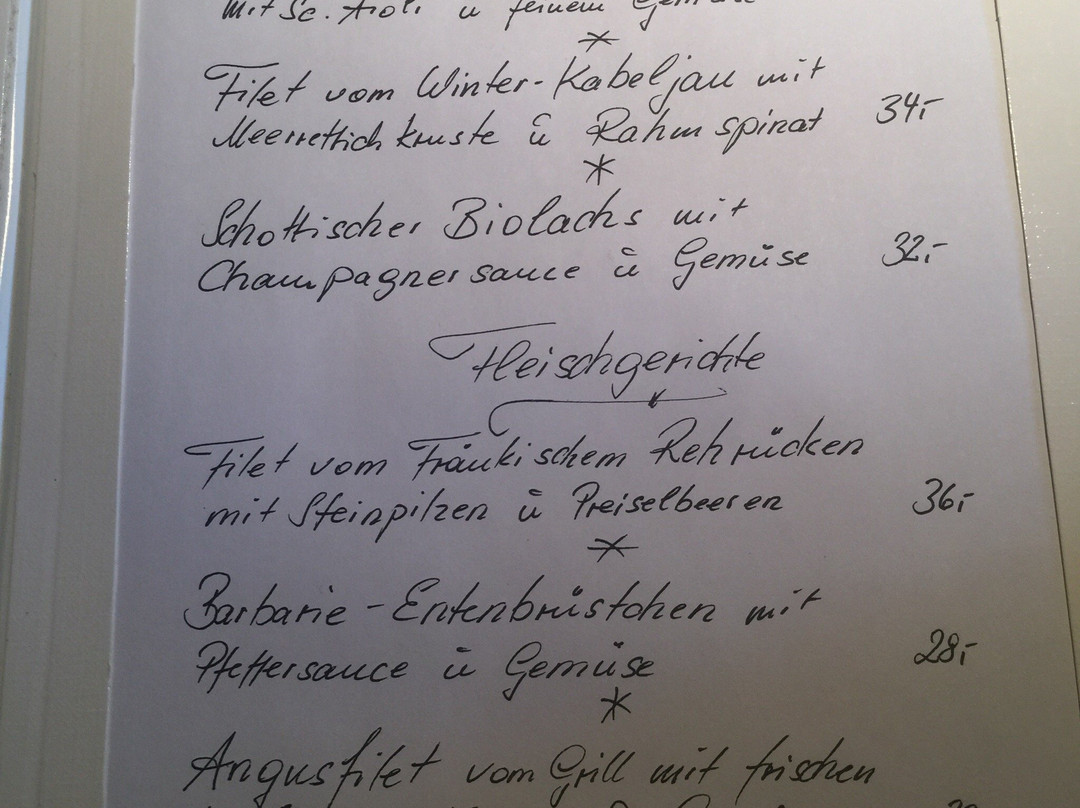 mit Sc. Aioli u feinem Gemüse
Filet vom Winter-Kabeljau mit
Meerrettichkruste ü Rahmspinat 34,-
Schottischer Biolachs mit
Champagnersauce ü Gemüse 32,-
Fleischgerichte
Filet vom Fränkischem Rehrücken
mit Steinpilzen ü Preiselbeeren 36,-
Barbarie-Entenbrüstchen mit
Pfeffersauce ü Gemüse 28,-
Angusfilet vom Grill mit frischen